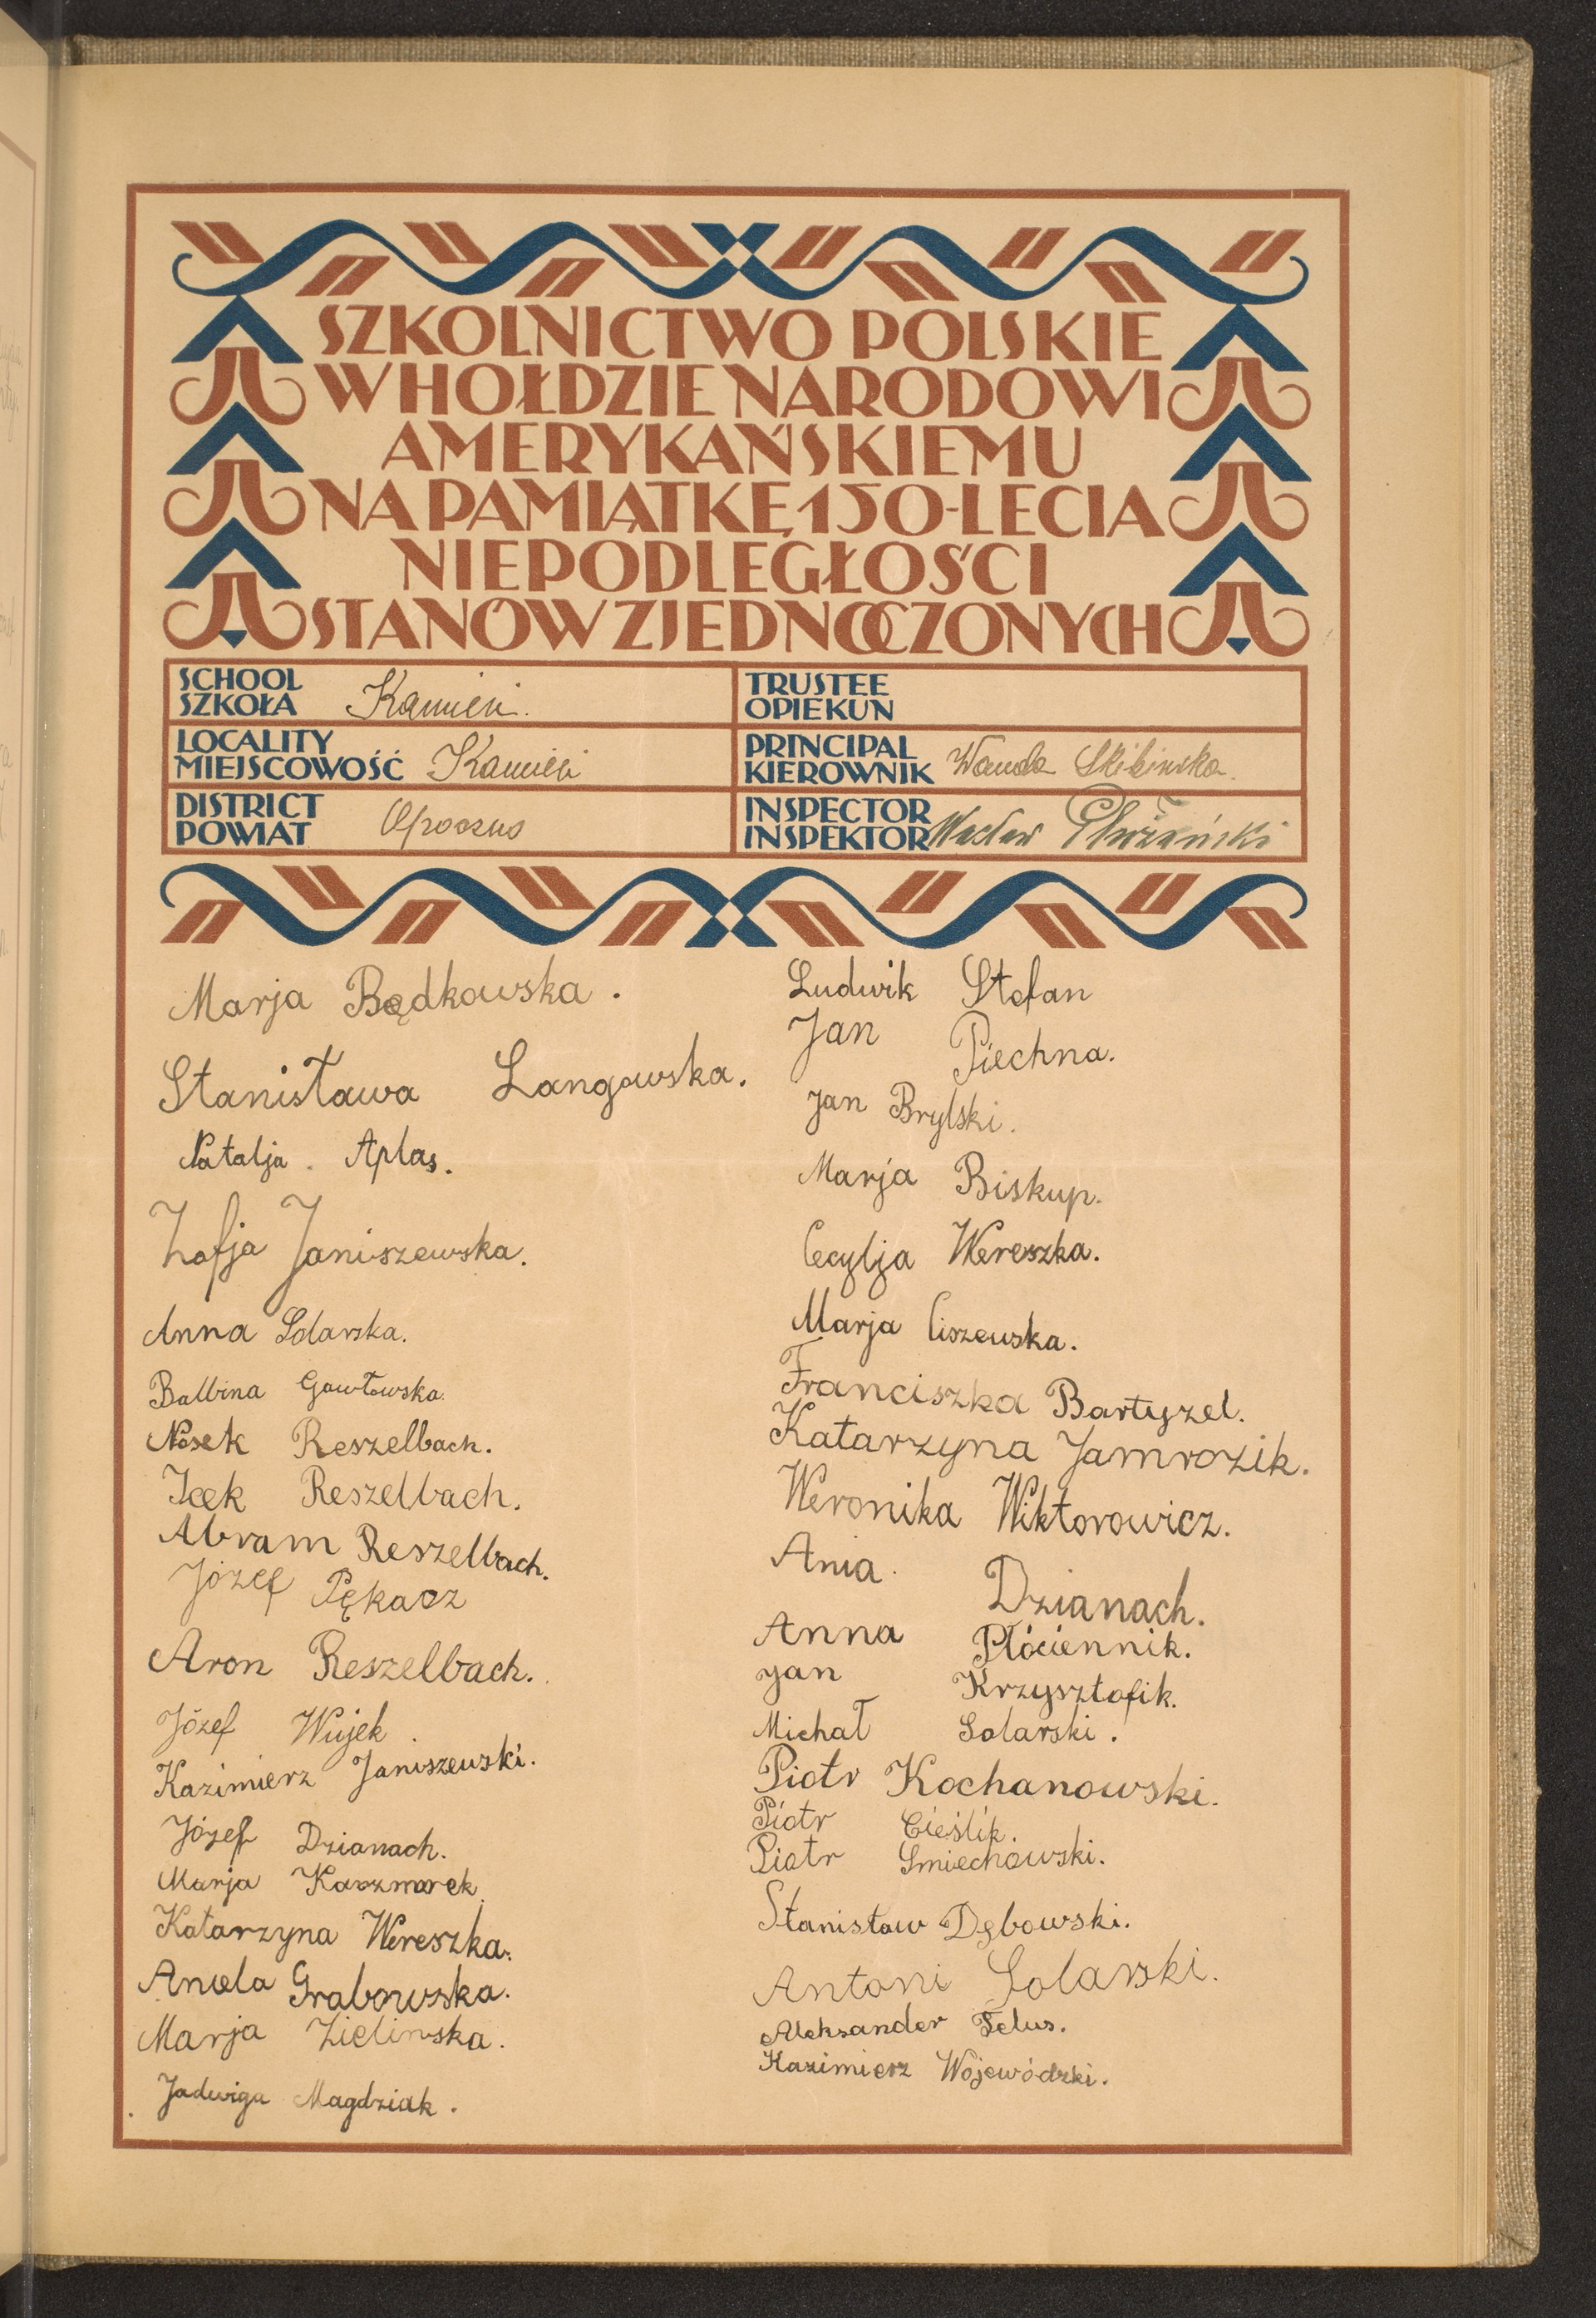 SZKOLNICTWO POLSKIE
W HOŁDZIE NARODOWI
AMERYKAŃSKIEMU
NA PAMIĄTKĘ 150-LECIA
NIEPODLEGŁOŚCI
STANÓW ZJEDNOCZONYCH
SCHOOL
SZKOŁA Kamień.
TRUSTEE
OPIEKUN
LOCALITY
MIEJSCOWOŚĆ Kamień
PRINCIPAL
KIEROWNIK Wanda Skibinska.
DISTRICT
POWIAT Opoczno
INSPECTOR
INSPEKTOR Wacław
Marja Bądkowska.
Stanisława Langowska.
Natalja. Aplas.
Zofja Janiszewska.
Anna Solarska.
Balbina Gawłowska.
Nosek Reszelbach.
Icek Reszelbach.
Abram Reszelbach.
Józef Pękacz
Aron Reszelbach.
Józef Wujek.
Kazimierz Janiszewski.
Józef Dzianach.
Marja Kaczmarek.
Katarzyna Wereszka.
Aniela Grabowska.
Marja Zielinska.
Jadwiga Magdziak.
Ludwik Stefan
Jan Piechna.
Jan Brylski.
Marja Biskup.
Cecylja Wereszka.
Marja Ciszewska.
Franciszka Bartyzel.
Katarzyna Jamrozik.
Weronika Wiktorowicz.
Ania. Dzianach.
Anna Płóciennik.
Jan Krzysztofik.
Michał Solarski.
Piotr Kochanowski.
Piotr Cieślik.
Piotr Smiechowski.
Stanisław Dębowski.
Antoni Solarski.
Aleksander Felus.
Kazimierz Wojewódzki.